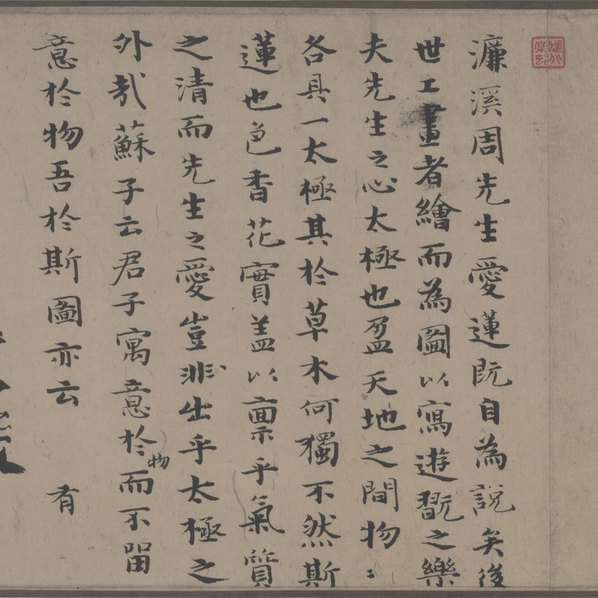 濂溪周先生愛蓮既自為說矣後
世工畫者繪而為圖以寫遊翫之樂
夫先生之心太極也盈天地之間物〻
各具一太極其於草木何獨不然斯
蓮也色香花實盖以稟乎氣質
之清而先生之愛豈非出乎太極之
外哉蘇子云君子寓意於物而不留
意於物吾於斯圖亦云 有